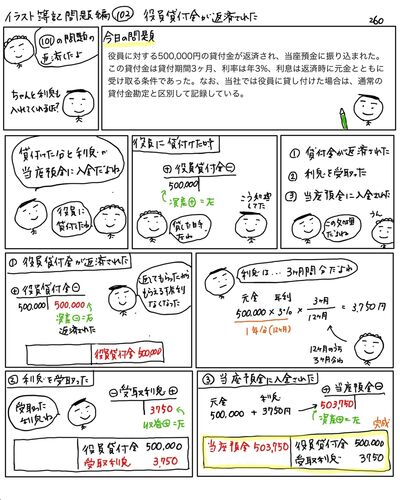 イラスト簿記問題編 102 役員貸付金が返済された
260
101の問題の
返済でしょ
ちゃんと利息も
入れてくれるよね?
今日の問題
役員に対する500,000円の貸付金が返済され、当座預金に振り込まれた。
この貸付金は貸付期間3ヶ月、利率は年3%、利息は返済時に元金とともに
受け取る条件であった。なお、当社では役員に貸し付けた場合は、通常の
貸付金勘定と区別して記録している。
貸付けた分と利息が
当座預金に入金だよね
役員に
貸付けたわね
役員に貸付けた時
⊕ 役員貸付金 ⊖
500,000
資産⊕=左
貸した時
だね
こう処理
してた
① 貸付金が返済された
② 利息を受取った
③ 当座預金に入金された
この文の順
だよね
うん
① 役員貸付金が返済された
⊕ 役員貸付金 ⊖
500,000 500,000
資産⊖=右
返済された
返してもらったから
もらえる権利
なくなった
役員貸付金 500,000
利息は…3ヶ月間分だよね
元金 年利
500,000 × 3% × 3ヶ月/12ヶ月 = 3,750円
1年分(12ヶ月)
12ヶ月の内
3ヶ月分ね
② 利息を受取った
受取った
利息ね
⊖ 受取利息 ⊕
3750
収益⊕=右
役員貸付金 500,000
受取利息 3,750
③ 当座預金に入金された
元金 利息
500,000 + 3750円
⊕ 当座預金 ⊖
503,750
資産⊕=左
完成
当座預金 503,750 役員貸付金 500,000
受取利息 3,750